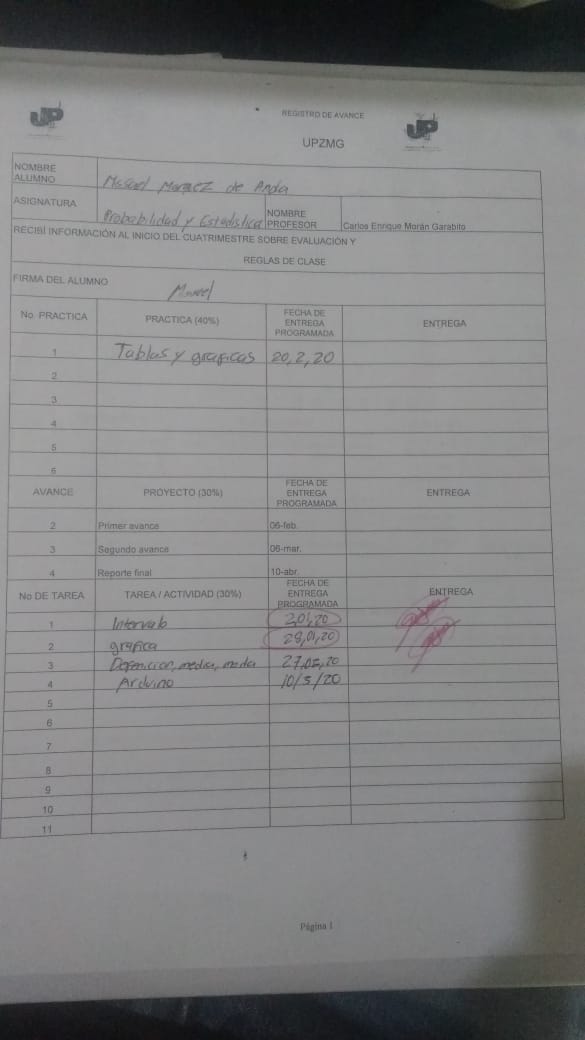 UP
REGISTRO DE AVANCE
UP
UPZMG
NOMBRE ALUMNO Manuel Marquez de Anda
ASIGNATURA Probabilidad y Estadistica NOMBRE PROFESOR Carlos Enrique Morán Garabito
RECIBÍ INFORMACIÓN AL INICIO DEL CUATRIMESTRE SOBRE EVALUACIÓN Y
REGLAS DE CLASE
FIRMA DEL ALUMNO Manuel
No. PRACTICA PRACTICA (40%) FECHA DE ENTREGA PROGRAMADA ENTREGA
1 Tablas y graficas 20,2,20
2
3
4
5
6
AVANCE PROYECTO (30%) FECHA DE ENTREGA PROGRAMADA ENTREGA
2 Primer avance 06-feb.
3 Segundo avance 06-mar.
4 Reporte final 10-abr.
No DE TAREA TAREA / ACTIVIDAD (30%) FECHA DE ENTREGA PROGRAMADA ENTREGA
1 Intervalo
2 grafica 28,01,20
3 Definicion, media, moda 27,02,20
4 Arduino 10/3/20
5
6
7
8
9
10
11
Página 1